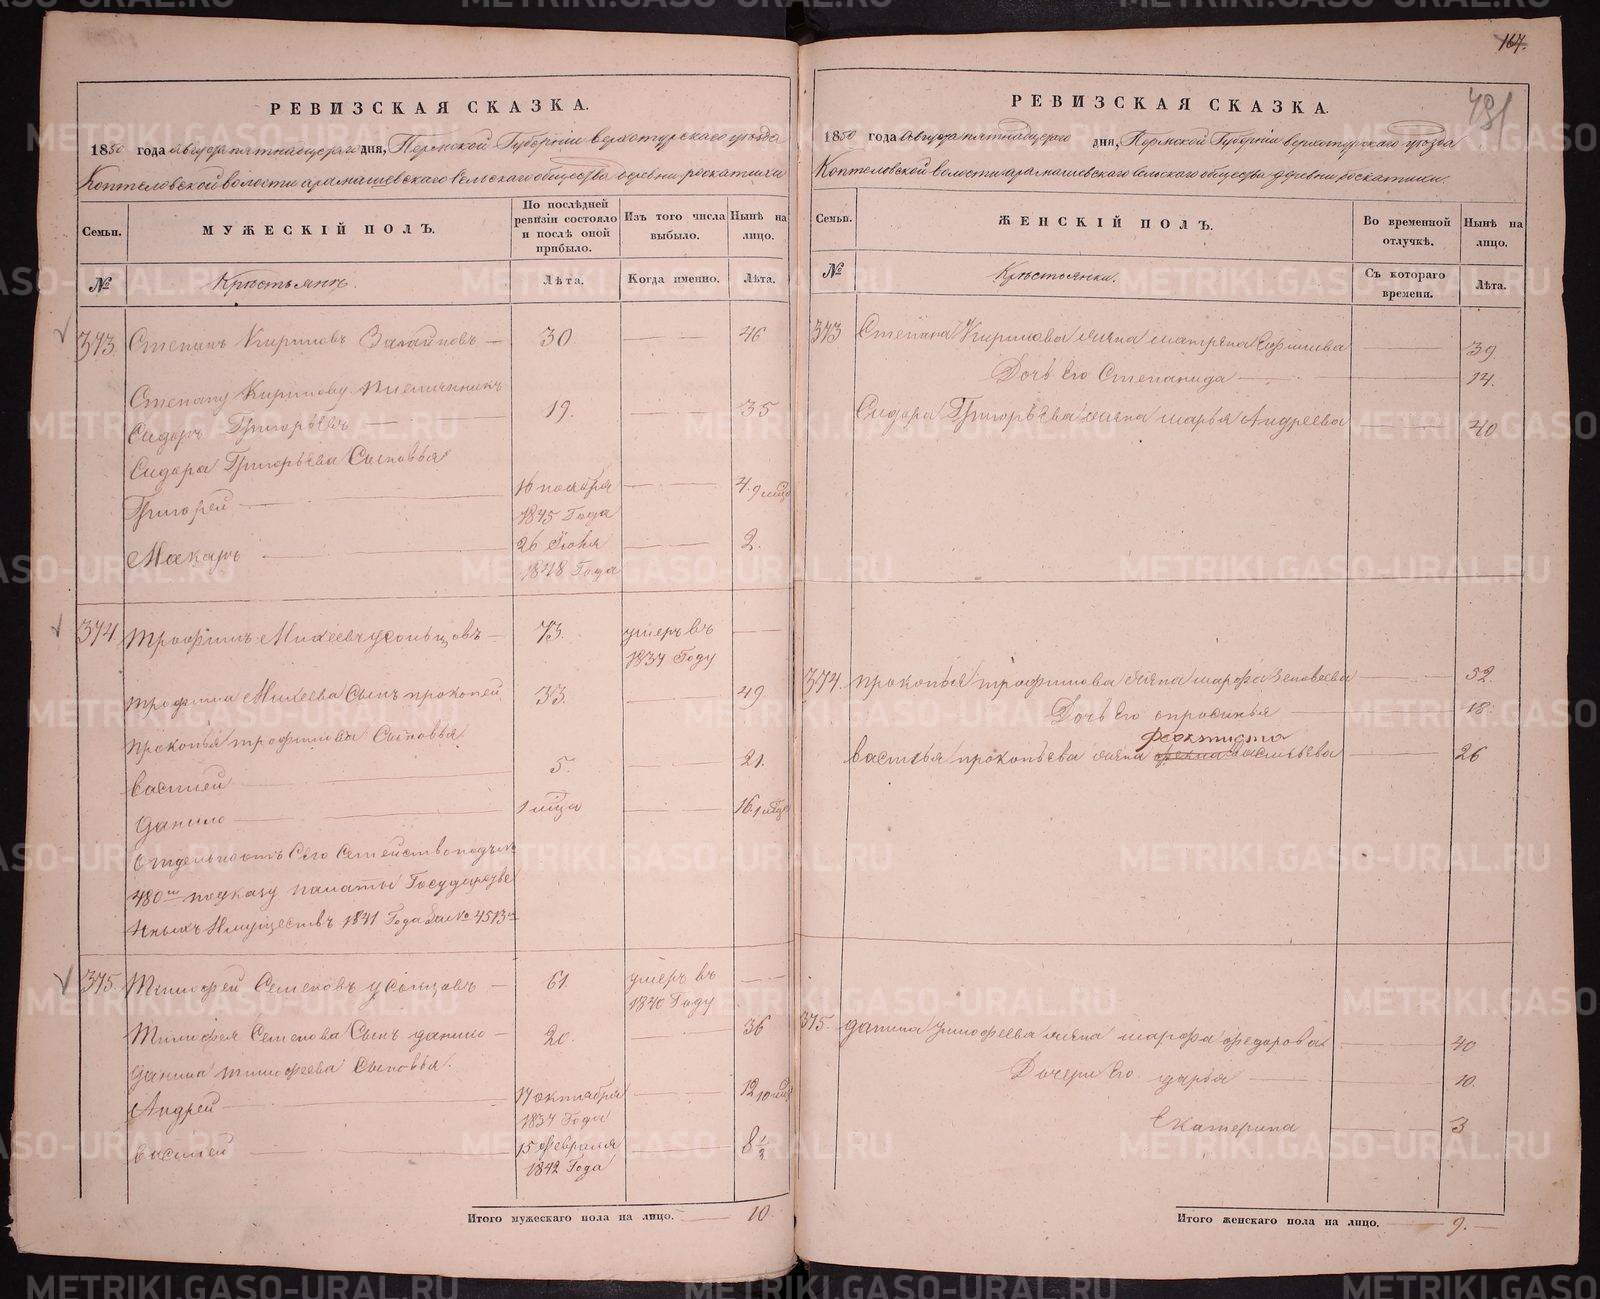 РЕВИЗСКАЯ СКАЗКА.
1850 года Августа пятнадцатаго дня, Пермской Губернии верхотурскаго уезда
Коптеловской волости арамашевскаго сельскаго общества деревни роскатихи
Семьи.
МУЖЕСКІЙ ПОЛЪ.
По послѣдней ревизіи состояло и послѣ оной прибыло.
Изъ того числа выбыло.
Нынѣ на лицо.
№
Крестьянъ.
Лѣта.
Когда именно.
Лѣта.
373. Степанъ Кириловъ — 30. 46
Степану Кирилову племянникъ
Сидоръ Григорьевъ — 19. 35
Сидора Григорьева Сыновья
Григорей — 16 ноября 4. 9 мѣс
1845 Года
Макаръ — 26 Іюня 2.
1848 Года
374. Трофимъ Михеевъ усольцовъ — 73. умеръ въ
1837 Году
трофима Михеева Сынъ прокопей 33. 49.
прокопья трофимова Сыновья
василей 5. 21.
данило — 1 мѣца 16
480 по указу палаты Государстве
нныхъ Имуществъ 1841 Года за № 4513
375. Тимофей Семеновъ усольцовъ — 61. умеръ въ
1840 Году
Тимофея Семенова Сынъ данило — 20. 36
данила тимофеева Сыновья.
Андрей — 17 октября 12 10 мѣс
1837 Года
василей — 15 февраля 8 1/2
1842 Года
Итого мужескаго пола на лицо. — 10.
167.
481
РЕВИЗСКАЯ СКАЗКА.
1850 года Августа пятнадцатаго дня, Пермской Губернии верхотурскаго уезда
Коптеловской волости арамашевскаго сельскаго общества деревни роскатихи.
Семьи.
ЖЕНСКІЙ ПОЛЪ.
Во временной отлучкѣ.
Нынѣ на лицо.
№
Крестьянки.
Съ котораго времени.
Лѣта.
373 Степана Кирилова жена матрена Ефимова 39.
Дочь Его Степанида — 14.
Сидора Григорьева жена марья Андреева 40
374. прокопья трофимова жена марфа 52.
Дочь Его опросинья — 18.
феоктиста
василья прокопьева жена васильева 26
375. данила тимофеева жена марфа федорова 40
Дочери Его дарья — 10.
Екатерина 3
Итого женскаго пола на лицо. — 9. —
METRIKI.GASO-URAL.RU